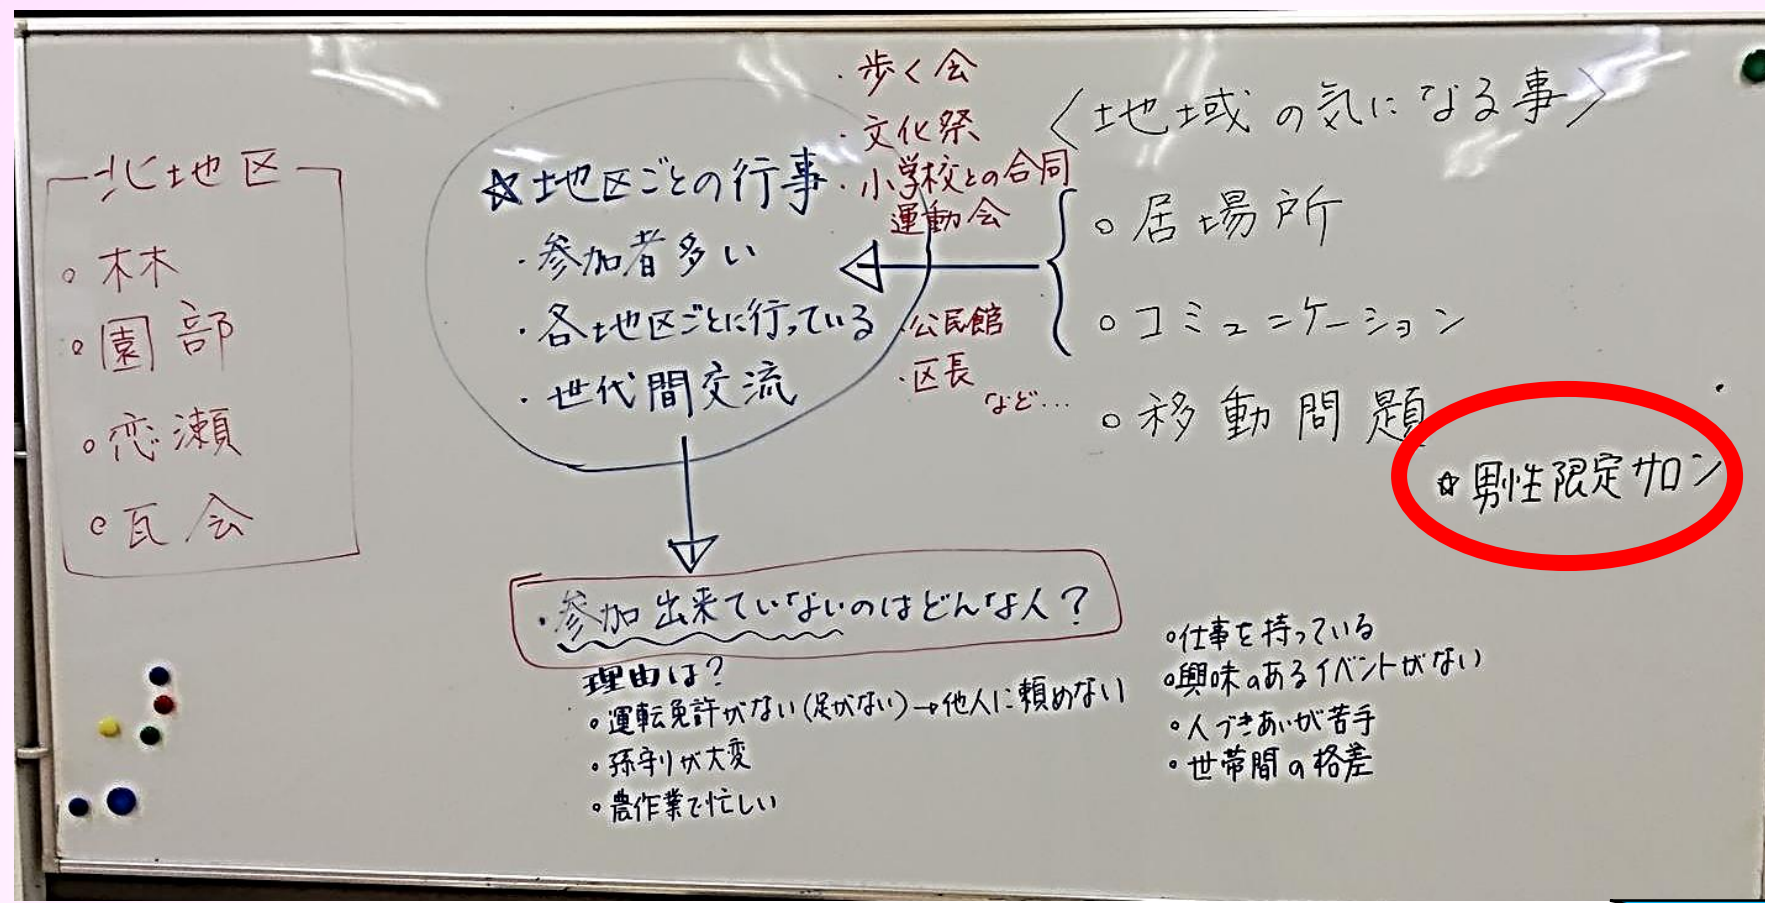 北地区
。林
。園部
。恋瀬
。瓦会
☆地区ごとの行事
・参加者多い
・各地区ごとに行っている
・世代間交流
・歩く会
・文化祭
・小学校との合同
運動会
・公民館
・区長
など…
〈地域の気になる事〉
。居場所
。コミュニケーション
。移動問題
☆男性限定サロン
・参加出来ていないのはどんな人？
理由は？
。運転免許がない(足がない)→他人に頼めない
。孫守りが大変
。農作業で忙しい
。仕事を持っている
。興味のあるイベントがない
。人づきあいが苦手
。世帯間の格差